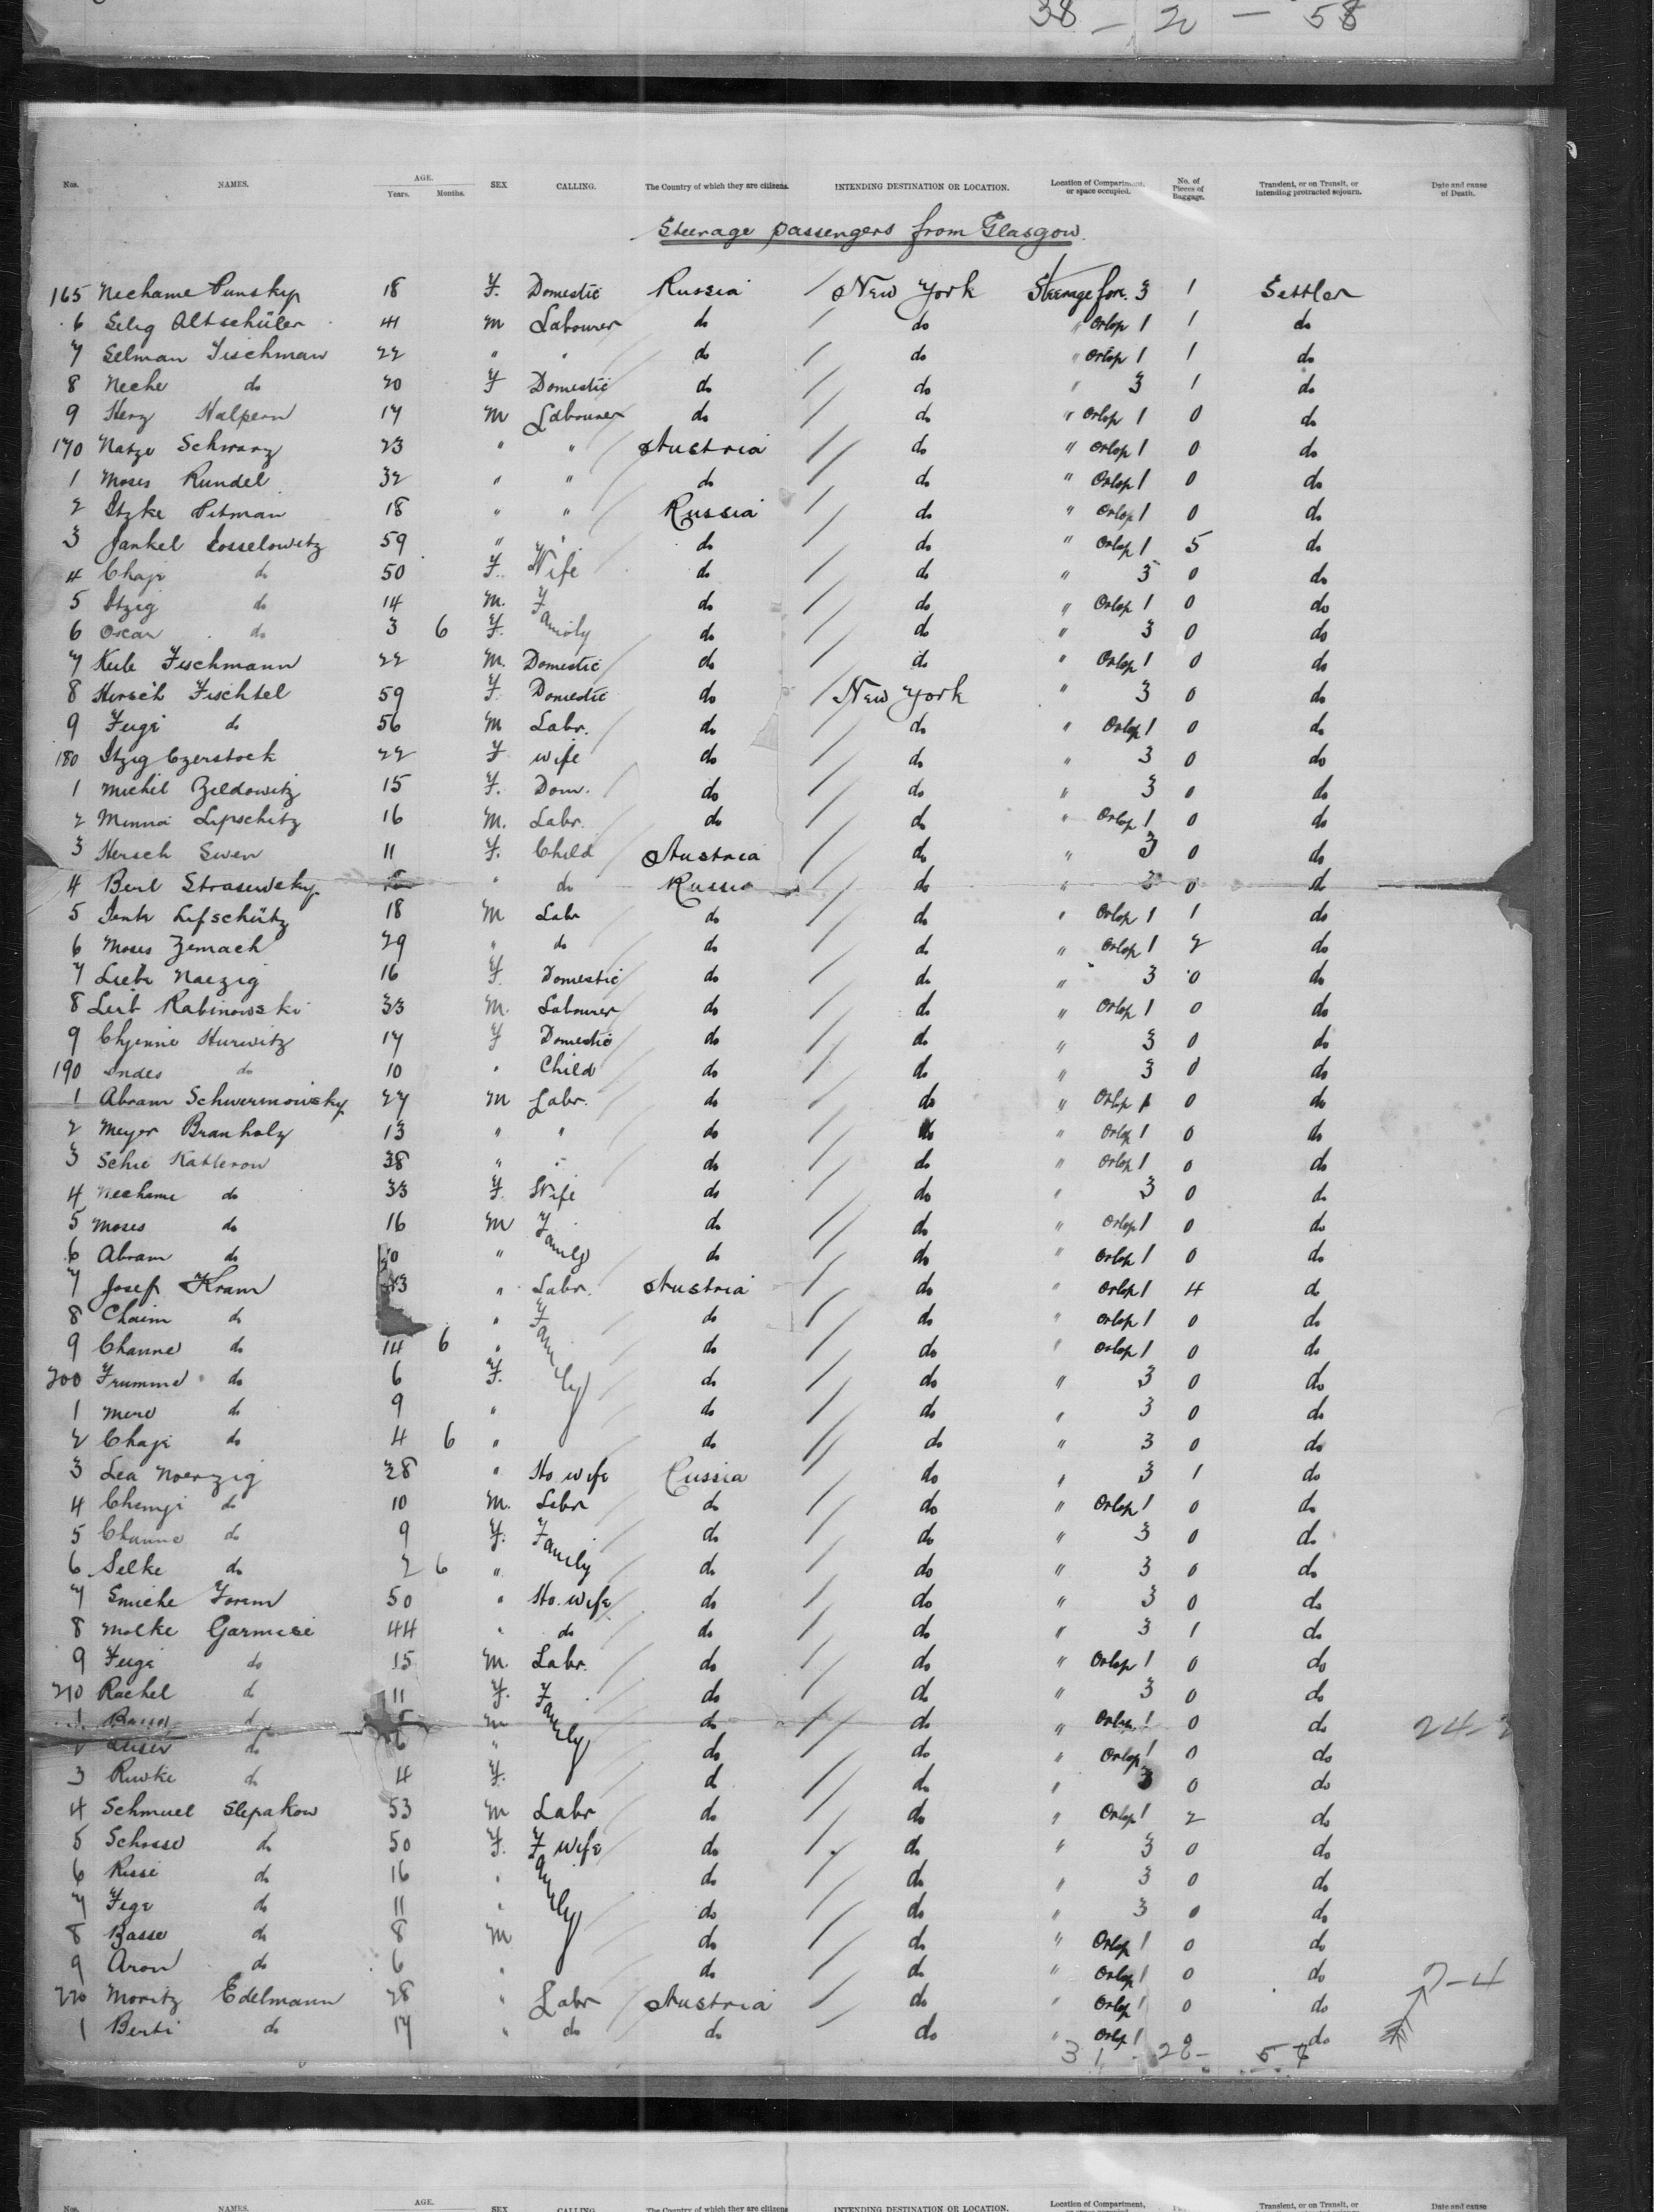 38 - 20 - 58
Nos. NAMES. AGE. Years. Months. SEX CALLING. The Country of which they are citizens. INTENDING DESTINATION OR LOCATION. Location of Compartment, or space occupied. No. of Pieces of Baggage. Transient, or on Transit, or intending protracted sojourn. Date and cause of Death.
Steerage passengers from Glasgow.
165 Nechame Punskyp 18 F. Domestic Russia / New York Steerage for. 3 1 Settler
6 Selig Altschüler 41 M Labourer do / do " Orlop 1 1 do
7 Selman Fischman 22 " " do / do " Orlop 1 1 do
8 Neche do 20 F Domestic do / do " 3 1 do
9 Herz Halpern 17 M Labourer do / do " Orlop 1 0 do
170 Natze Schwarz 23 " " Austria // do " Orlop 1 0 do
1 Moses Rundel 32 " " do // do " Orlop 1 0 do
2 Itzke Pitman 18 " " Russia / do " Orlop 1 0 do
3 Jankel Losselowitz 59 " " do / do " Orlop 1 5 do
4 Chaje do 50 F. Wife do / do " 3 0 do
5 Itzig do 14 M. Family do / do " Orlop 1 0 do
6 Oscar do 3 6 F. do / do " 3 0 do
7 Keile Fischmann 22 M. Domestic do / do " Orlop 1 0 do
8 Hirsch Fischtel 59 F. Domestic do / New York " 3 0 do
9 Feige do 56 M Labr. do / do " Orlop 1 0 do
180 Itzig Czerstock 22 F wife do / do " 3 0 do
1 Michel Zeldowitz 15 F. Dom. do / do " 3 0 do
2 Minna Lipschitz 16 M. Labr. do / do " Orlop 1 0 do
3 Hersch Swen 11 F. Child Austria / do " 3 0 do
4 Berl Strasewsky " do Russia / do " 3 0 do
5 Lifschütz 18 M Labr do / do " Orlop 1 1 do
6 Moses Zemach 29 " do do / do " Orlop 1 2 do
7 Liebe Naezig 16 F. Domestic do / do " 3 0 do
8 Leib Rabinowski 33 M. Labourer do / do " Orlop 1 0 do
9 Chjenne Hurwitz 17 F Domestic do / do " 3 0 do
190 Indes do 10 " Child do / do " 3 0 do
1 Abram Schwermowsky 27 M Labr. do / do " Orlop 1 0 do
2 Meyer Branholz 13 " " do / do " Orlop 1 0 do
3 Schie Katlerow 38 " " do / do " Orlop 1 0 do
4 Nechame do 33 F. Wife do / do " 3 0 do
5 Moses do 16 M Family do / do " Orlop 1 0 do
6 Abram do " do / do " Orlop 1 0 do
7 Josef Kram 43 " Labr. Austria / do " Orlop 1 4 do
8 Chaim do " Family do / do " Orlop 1 0 do
9 Channe do 14 6 " do / do " Orlop 1 0 do
200 Frumme do 6 F. do / do " 3 0 do
1 Mere do 9 " do / do " 3 0 do
2 Chaje do 4 6 " do // do " 3 0 do
3 Lea Noerzig 28 " Ho. wife Russia / do " 3 1 do
4 Chemje do 10 M. Labr do / do " Orlop 1 0 do
5 Channe do 9 F. Family do / do " 3 0 do
6 Selke do 2 6 " do / do " 3 0 do
7 Smiche Yorem 50 " Ho. wife do / do " 3 0 do
8 Malke Garmise 44 " do do / do " 3 1 do
9 Feige do 15 M. Labr. do / do " Orlop 1 0 do
210 Rachel do 11 F. Family do / do " 3 0 do
1 Basse do M do / do " Orlop 1 0 do 24-
2 do 6 " do / do " Orlop 1 0 do
3 Riwke do 4 F. do / do " 3 0 do
4 Schmuel Slepakow 53 M Labr do / do " Orlop 1 2 do
5 Schosse do 50 F. wife do / do " 3 0 do
6 Risse do 16 " Family do / do " 3 0 do
7 Fege do 11 " do / do " 3 0 do
8 Basse do 8 M do / do " Orlop 1 0 do
9 Aron do 6 " do / do " Orlop 1 0 do 7-4
220 Moritz Edelmann 28 " Labr Austria / do " Orlop 1 0 do
1 Berti do 17 " do do do " Orlop 1 0 do
31 - 28 -
Nos. NAMES. AGE. SEX CALLING. The Country of which they are citizens INTENDING DESTINATION OR LOCATION. Location of Compartment, Transient, or on Transit, or Date and cause